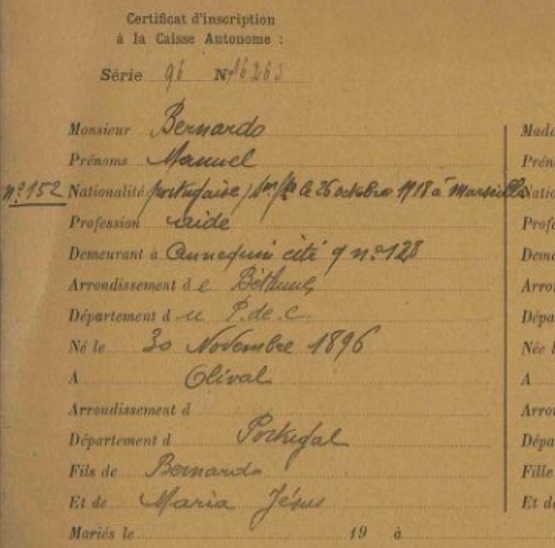 Certificat d'inscription
à la Caisse Autonome :
Série 96 N° 16263
Monsieur Bernardo
Prénoms Manuel
n° 152 Nationalité portugaise le 26 octobre 1918 à Marseille
Profession aide
Demeurant à Annequin cité 9 n° 128
Arrondissement de Béthune
Département du P. de. C
Né le 30 Novembre 1896
A Olival
Arrondissement d
Département d Portugal
Fils de Bernardo
Et de Maria Jésus
Mariés le 19 à
Mada
Prén
Natio
Profe
Deme
Arro
Dépa
Née l
A
Arro
Dépa
Fille
Et de